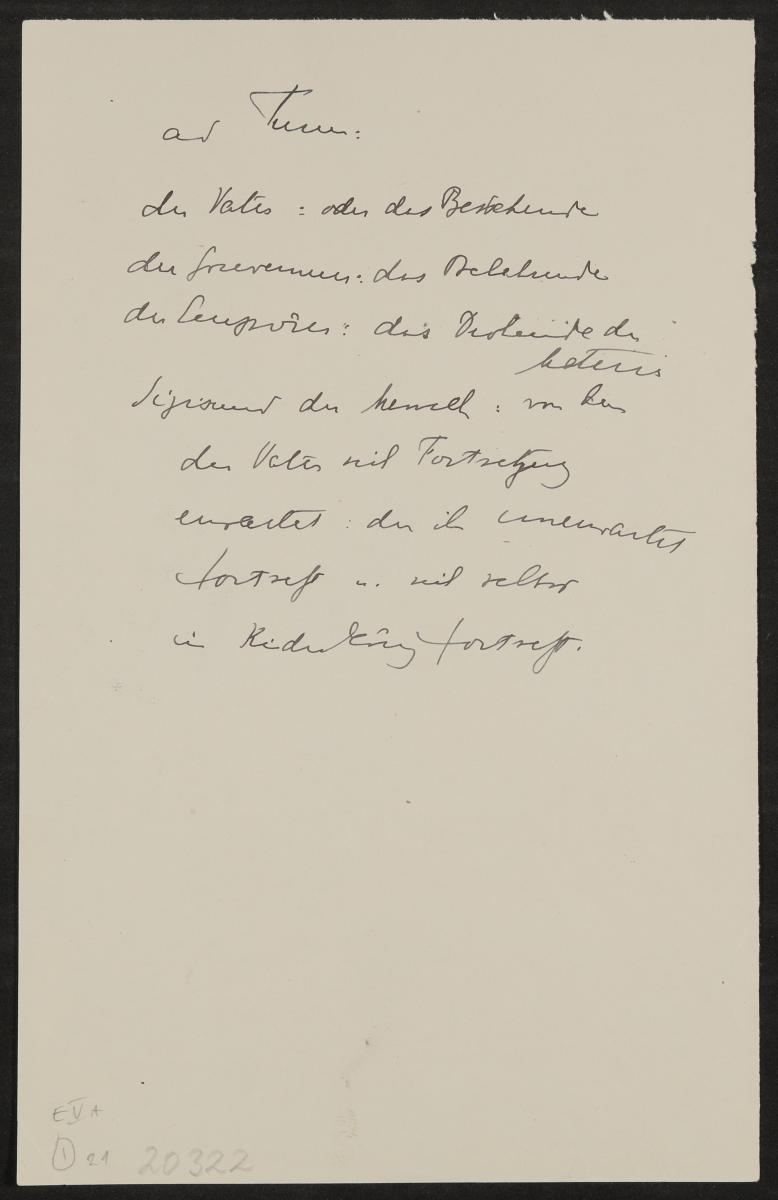 ad Turm:
der Vater: oder das Bestehende
der Gouverneur: das Belehrende
der : das Drohende der
Materie
Sigismund der Mensch: von dem
der Vater sich Fortsetzung
erwartet: der ihn unerwartet
fortsetzt u. sich selbst
im Kinderkönig fortsetzt.
E V A
1 21 20322